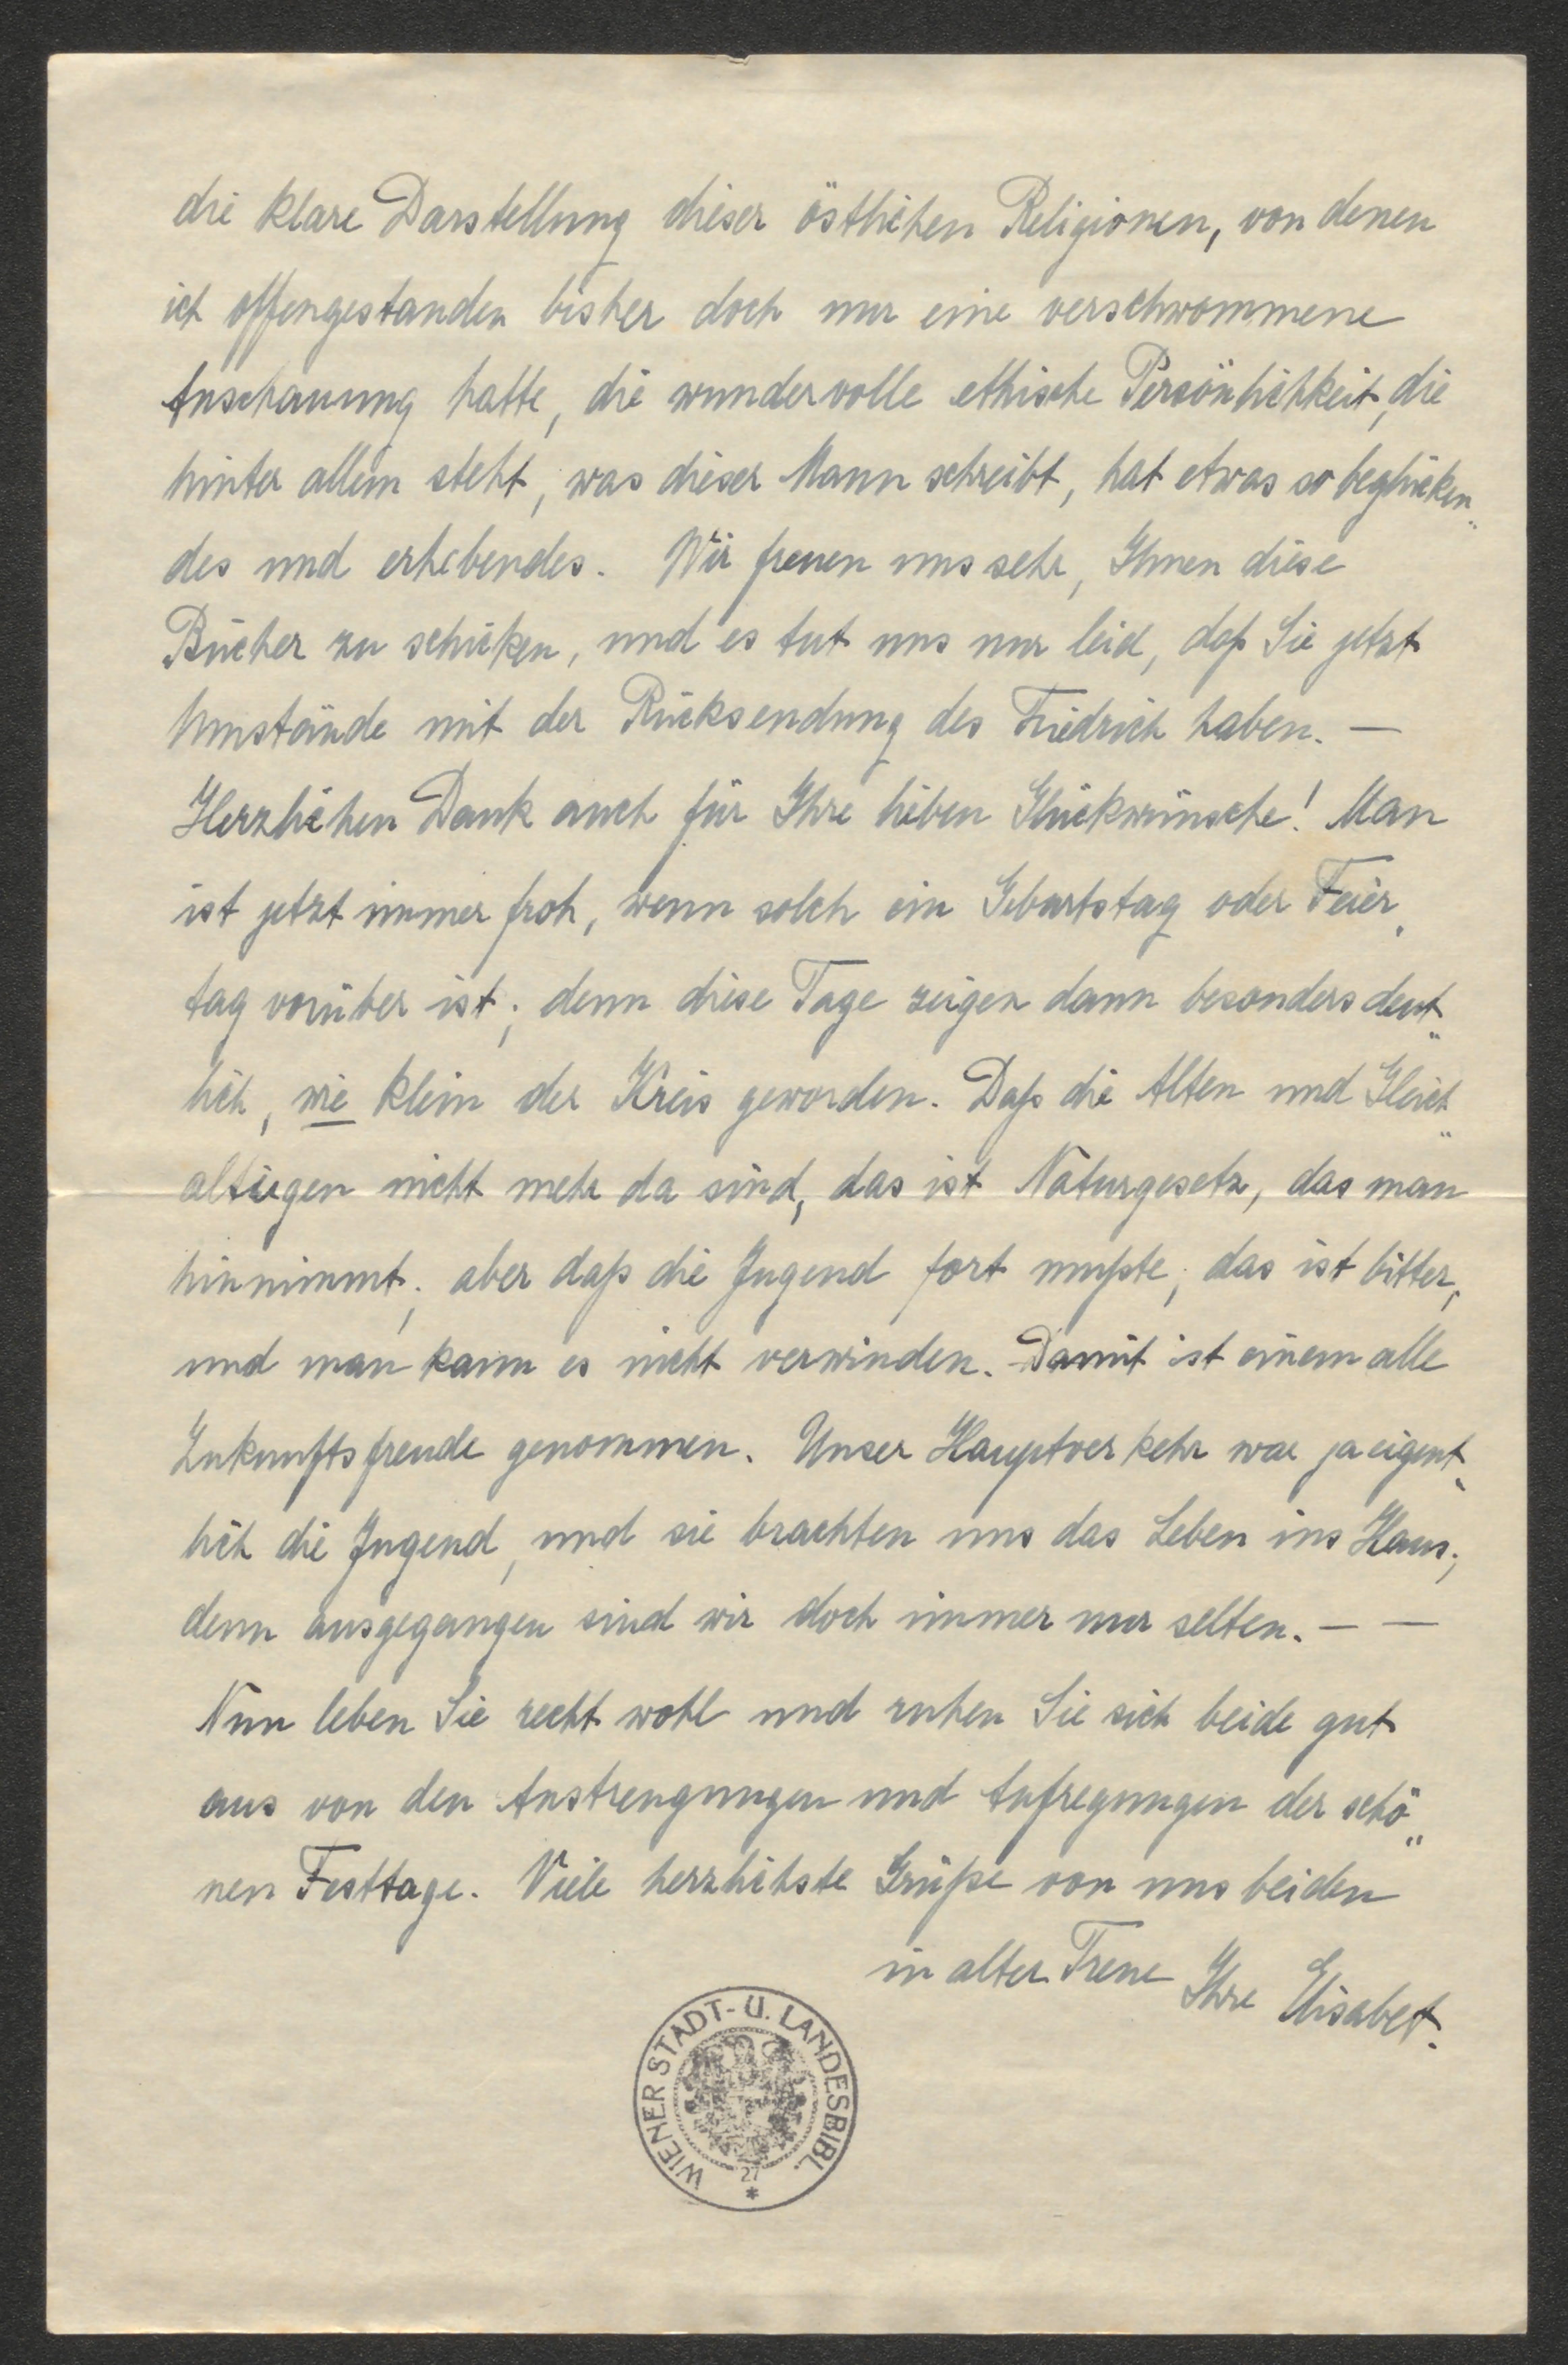 die klare Darstellung dieser östlichen Religionen, von denen
ich offengestanden bisher doch nur eine verschwommene
Anschauung hatte, die wundervolle ethische Persönlichkeit, die
hinter allem steht, was dieser Mann schreibt, hat etwas so beglücken„
des und erhebendes. Wir freuen uns sehr, Ihnen diese
Bücher zu schicken, und es tut uns nur leid, daß Sie jetzt
Umstände mit der Rücksendung des Friedrich haben. —
Herzlichen Dank auch für Ihre lieben Glückwünsche! Man
ist jetzt immer froh, wenn solch ein Geburtstag oder Feier„
tag vorüber ist; denn diese Tage zeigen dann besonders deut„
lich, wie klein der Kreis geworden. Daß die Alten und Gleich„
altrigen nicht mehr da sind, das ist Naturgesetz, das man
hinnimmt; aber daß die Jugend fort mußte, das ist bitter,
und man kann es nicht verwinden. Damit ist einem alle
Zukunftsfreude genommen. Unser Hauptverkehr war ja eigent„
lich die Jugend, und sie brachten uns das Leben ins Haus;
denn ausgegangen sind wir doch immer nur selten. — —
Nun leben Sie recht wohl und ruhen Sie sich beide gut
aus von den Anstrengungen und Aufregungen der schö„
nen Festtage. Viele herzlichste Grüße von uns beiden
in alter Treue Ihre Elisabet.
WIENER STADT- U. LANDESBIBL.
27
*